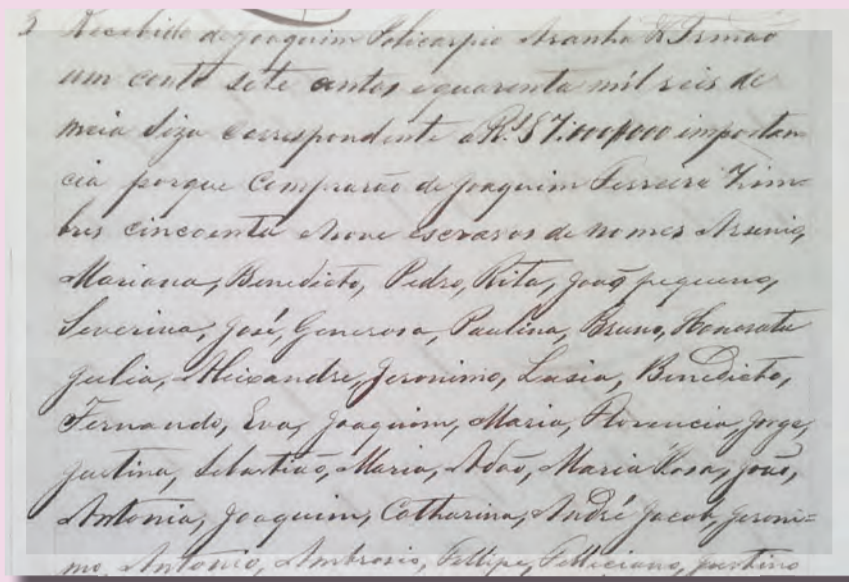 3 Recebido de Joaquim Policarpio Aranha & Irmão
um conto sete centos e quarenta mil reis de
meia siza correspondente a Rs 87:000$000 importan
cia porque comprarão de Joaquim Ferreira Zim=
bres cincoenta e nove escravos de nomes Arsenio,
Mariana, Benedicto, Pedro, Rita, João pequeno,
Severina, José, Generosa, Paulina, Bruno, Honorata
Julia, Aleixandre, Jeronimo, Lusia, Benedicto,
Fernando, Eva, Joaquim, Maria, Florencia, Jorge,
Justina, Sebastião, Maria, Adão, Maria Rosa, João,
Antonia, Joaquim, Catharina, André Jacob, Jeroni=
mo, Antonio, Ambrosio, Fellipe, Felliciano, Justino